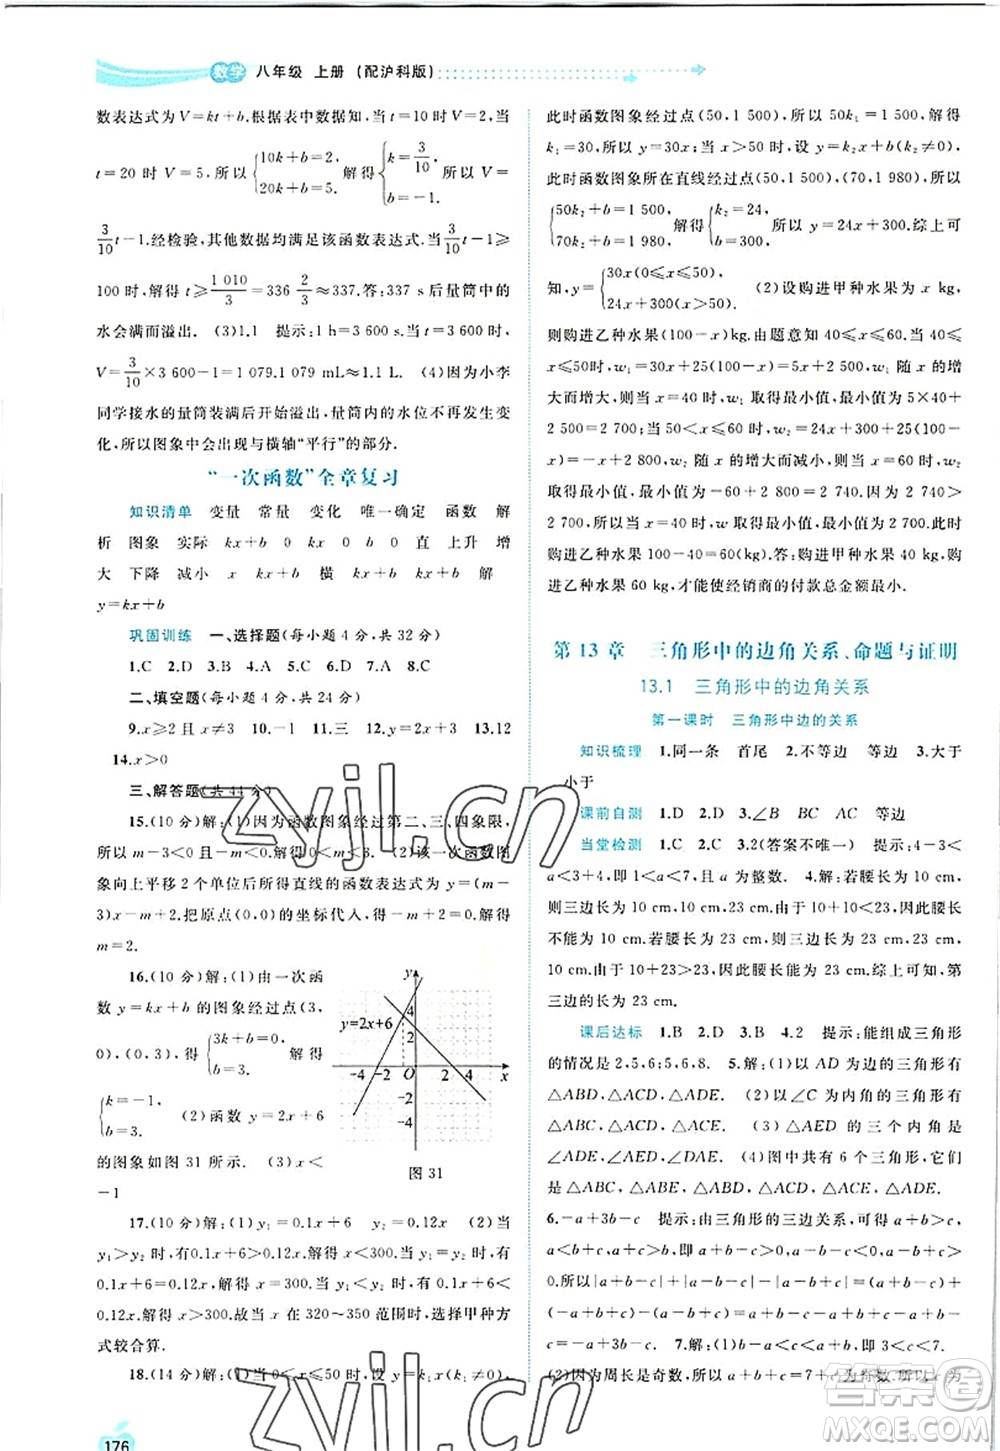 数学 八年级 上册 (配沪科版)
数表达式为 V=kt+b.根据表中数据知,当 t=10 时 V=2,当
t=20 时 V=5,所以{10k+b=2, 20k+b=5. 解得{k=3/10, b=-1. 所以 V=
3/10 t-1.经检验,其他数据均满足该函数表达式.当 3/10 t-1≥
100 时,t≥1 010/3=336 2/3≈337.答:337 s 后量筒中的
水会满而溢出. (3)1.1 提示:1 h=3 600 s.当 t=3 600 时,
V=3/10×3 600-1=1 079.1 079 mL≈1.1 L. (4)因为小李
同学接水的量筒装满后开始溢出,量筒内的水位不再发生变
化,所以图象中会出现与横轴“平行”的部分.
“一次函数”全章复习
知识清单 变量 常量 变化 唯一确定 函数 解
析 图象 实际 kx+b 0 kx 0 b 0 直 上升 增
大 下降 减小 x kx+b 横 kx+b kx+b 解
y=kx+b
巩固训练 一、选择题(每小题 4 分,共 32 分)
1.C 2.D 3.B 4.A 5.B 6.B 7.D 8.C
二、填空题(每小题 4 分,共 24 分)
9.x≥2且x≠3 10.三 11.y=2x 12.y=-x+3 13.12
14.x>0
三、解答题(共 44 分)
15.(10 分)解:(1)因为函数图象过第二、三、四象限,
所以 m-3<0 且-m<0.解得 0<m<3. (2)该一次函数图
象向上平移 2 个单位后所得直线的函数表达式为 y=(m-
3)x-m+2,把原点(0,0)的坐标代入,得-m+2=0.解得
m=2.
16.(10 分)解:(1)由一次函
数 y=kx+b 的图象经过点(3,
0),(0,3).得{3k+b=0, b=3. 解得
{k=-1, b=3. (2)函数 y=2x+6
的图象如图 31 所示. (3)x<
-1
y=2x+6
y
4
2
-4 -2 O 2 4 x
-2
-4
图 31
17.(10 分)解:(1)y₁=0.1x+6 y₂=0.12x (2)当
y₁>y₂ 时,0.1x+6>0.12x.解得 x<300;当 y₁=y₂ 时,
0.1x+6=0.12x.解得 x=300;当 y₁<y₂ 时,0.1x+6<
0.12x.解得 x>300.故当 x 在 320~350 范围时,选择甲种方
式较合算.
18.(14 分)解:(1)当 0≤x≤50 时,设 y=k₁x(k₁≠0).
176
此时函数图象经过点(50,1 500),所以 50k₁=1 500,解得
k₁=30,所以 y=30x;当 x>50 时,设 y=k₂x+b(k₂≠0).
此时函数图象所在直线经过点(50,1 500),(70,1 980),所以
{50k₂+b=1 500, 70k₂+b=1 980, 解得{k₂=24, b=300, 所以 y=24x+300.综上可
知,y={30x(0≤x≤50), 24x+300(x>50). (2)设购进甲种水果 x kg,
则购进乙种水果(100-x)kg.由题意知 40≤x≤60.当 40≤
x≤50 时,w₁=30x+25(100-x)=5x+2 500.w₁ 随 x 的增
大而增大,所以当 x=40 时,w₁ 取得最小值,最小值为 5×40+
2 500=2 700.当 50<x≤60 时,w₂=24x+300+25(100-
x)=-x+2 800.w₂ 随 x 的增大而减小,所以当 x=60 时,w₂
取得最小值,最小值为-60+2 800=2 740.因为 2 740>
2 700,所以当 x=40 时,w 取得最小值,最小值为 2 700.此时
购进乙种水果 100-40=60(kg).答:购进甲种水果 40 kg,
购进乙种水果 60 kg,才能使经销商的付款总金额最小.
第 13 章 三角形中的边角关系、命题与证明
13.1 三角形中的边角关系
第一课时 三角形中边的关系
知识梳理 1.同一条 首尾 2.不等边 等边 3.大于
小于
课前自测 1.D 2.D 3.∠B BC AC 等边
当堂检测 1.C 2.C 3.2(答案不唯一) 提示:4-3<
a<3+4,所以 1<a<7,且 a 为整数. 4.解:若腰长为 10 cm,
则三边长为 10 cm,10 cm,23 cm.因为 10+10<23,所以腰长
不能为 10 cm.若腰长为 23 cm,则三边长为 10 cm,23 cm,
23 cm.因为 10+23>23,所以腰长为 23 cm.综上可知,该等腰三角形的
第三边的长为 23 cm.
课后达标 1.B 2.D 3.B 4.2 提示:能组成三角形
的情况是 2,5,6;5,6,8. 5.解:(1)以 AD 为边的三角形有
△ABD,△ADE,△ADC. (2)以∠C 为内角的三角形有
△ABC,△ADC,△AEC. (3)△AED 的三个内角是
∠AED,∠DAE,∠ADE. (4)图中共有 6 个三角形,它们分别
是 △ABC,△ABD,△ABE,△ADE,△ADC,△AEC.
6.-a+3b-c 提示:由三角形的三边关系,可得 a+b>c,a+
c>b,b+c>a.所以 a+b-c>0,b-a-c<0,a-b-c<
0.所以|a+b-c|+|b-a-c|-|a-b-c|=(a+b-c)+
(-b+a+c)-(-a+b+c)=a+b-c-b+a+c+a-b-
c=-a+3b-c 7.解:(1)4-3<c<4+3,即 1<c<7.
(2)因为周长为奇数,所以 a+b+c=7+c为奇数.所以 c 为
zyjl.cn
答案圈
MXQE.COM